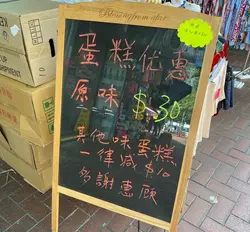 蛋糕优惠
原味 $30
其他味蛋糕
一律減$10
多謝惠顧